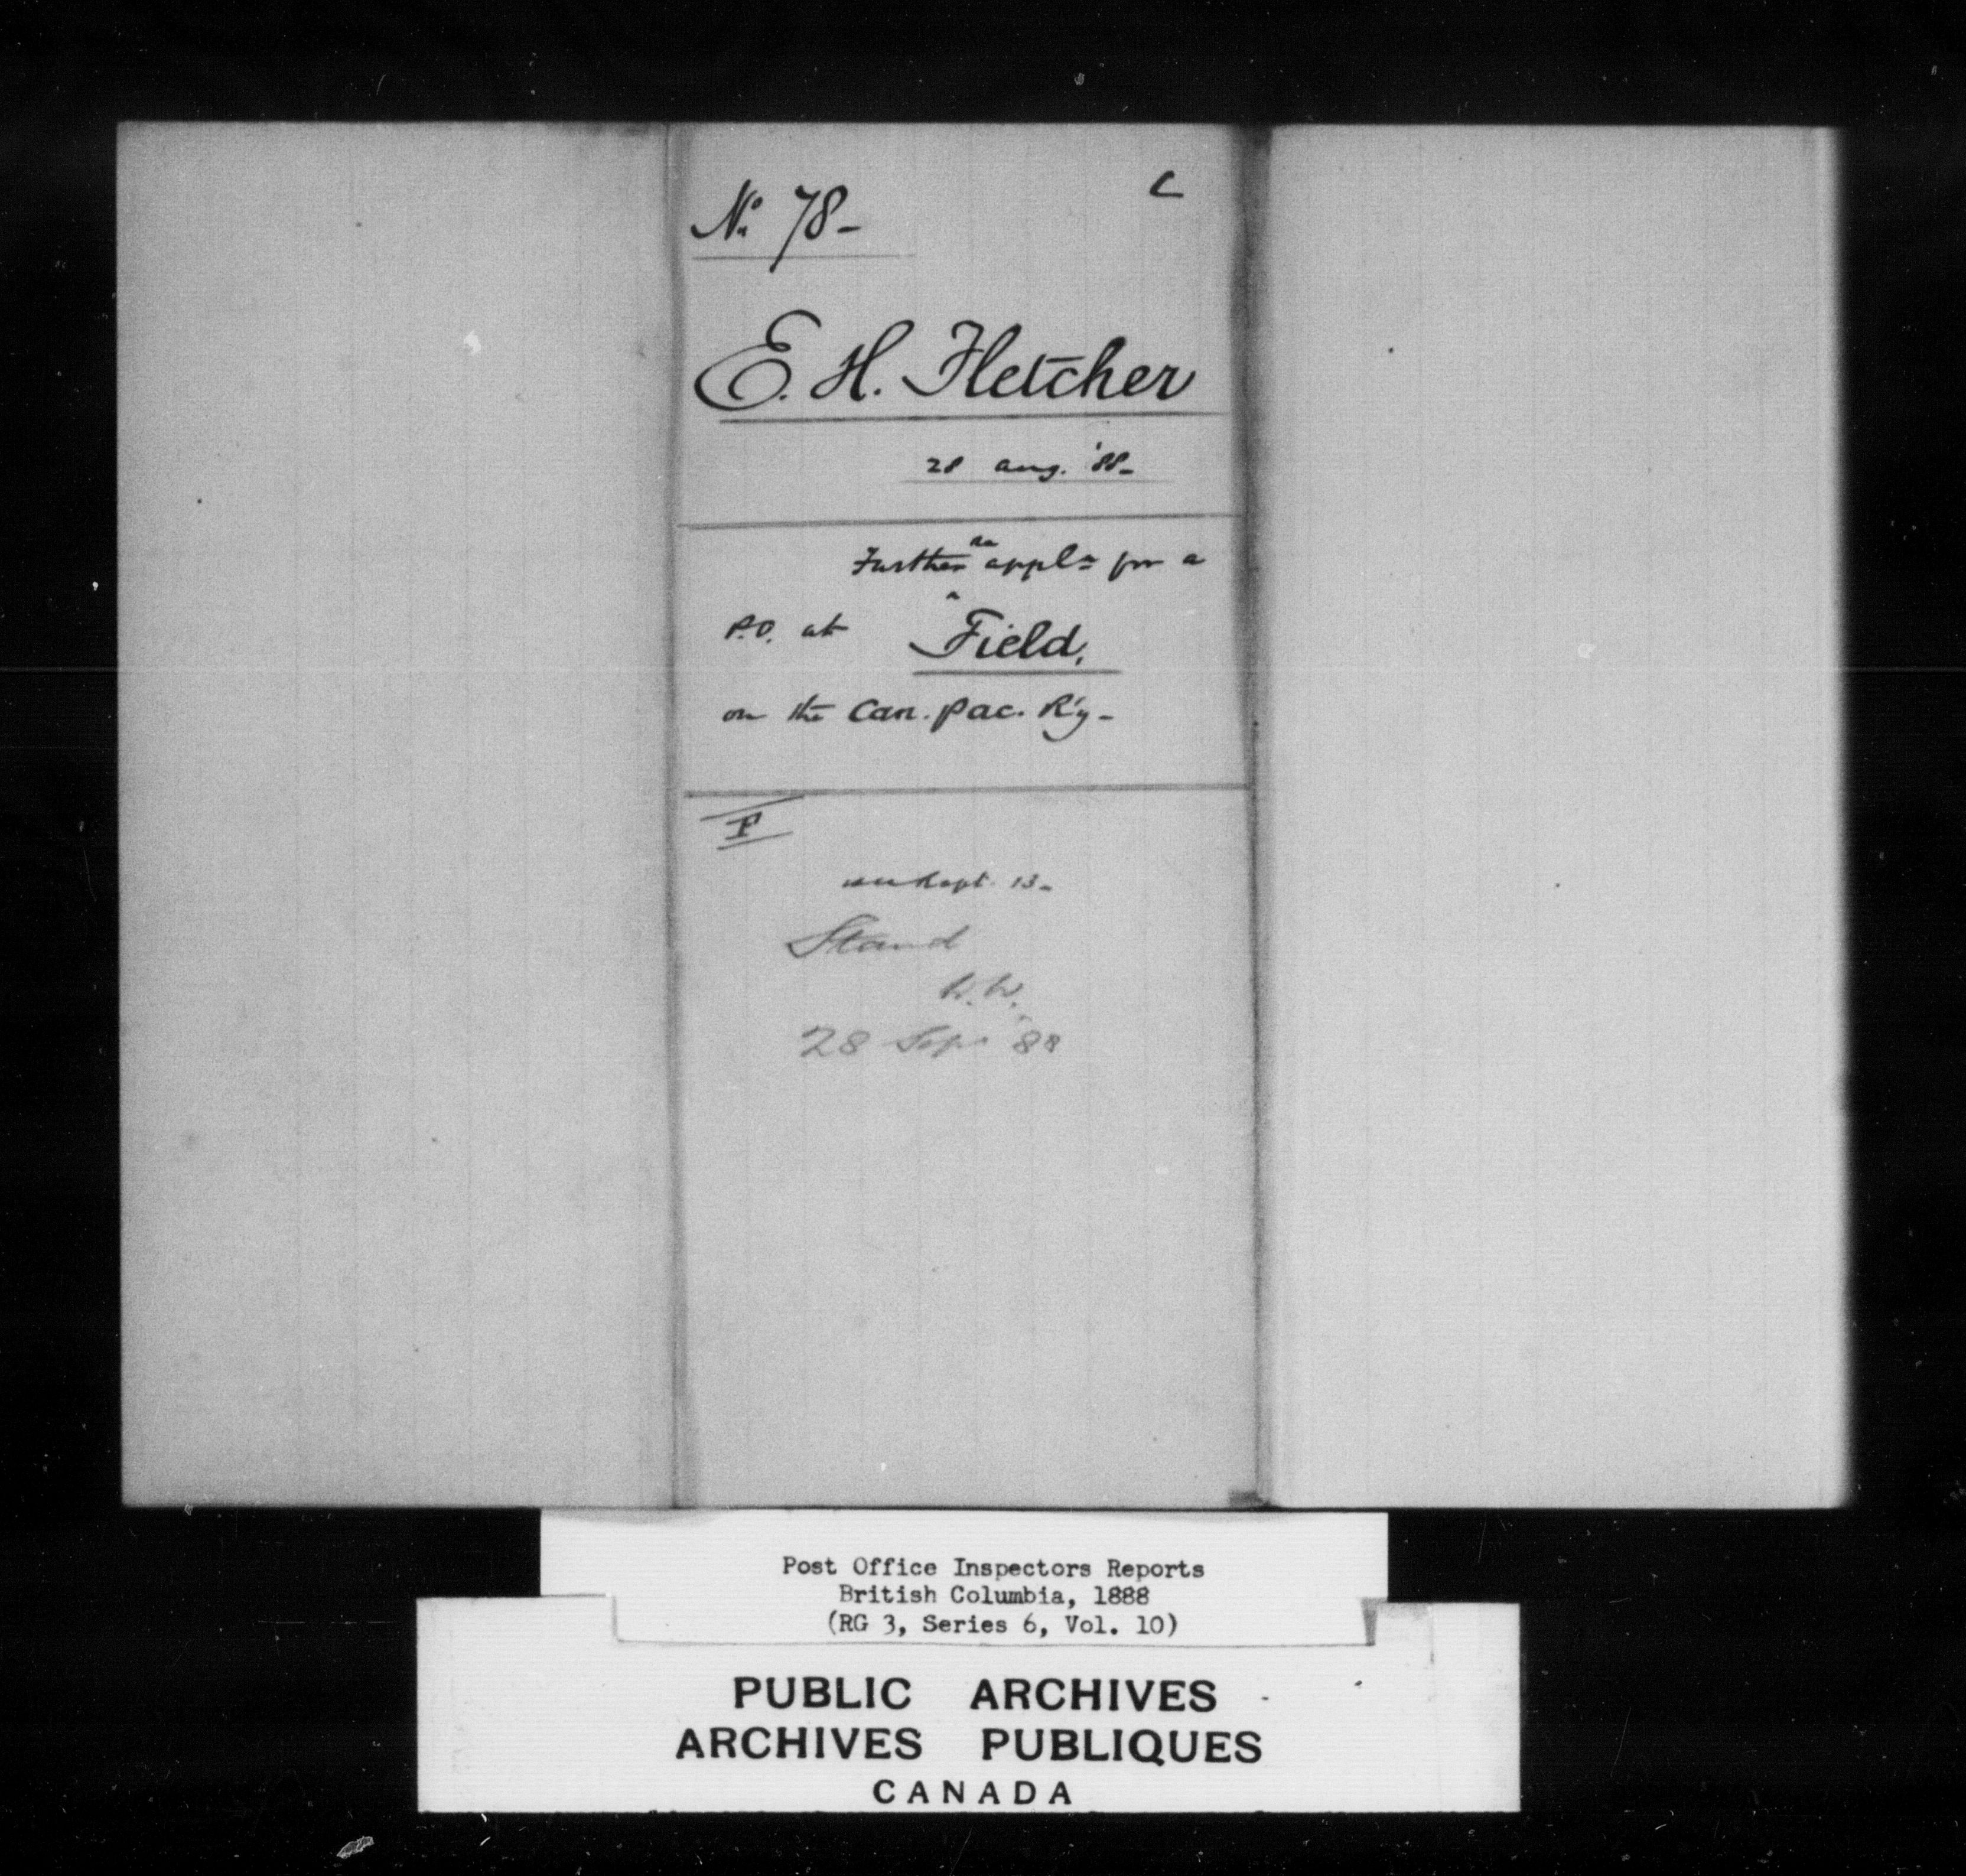 No. 78-
C
E. H. Fletcher
28 Aug. '88-
Further re appln for a
P.O. at Field,
on the Can. Pac. R'y-
F
Rept. 13-
Stand
W.W.
28 Sep '88
Post Office Inspectors Reports
British Columbia, 1888
(RG 3, Series 6, Vol. 10)
PUBLIC ARCHIVES
ARCHIVES PUBLIQUES
CANADA